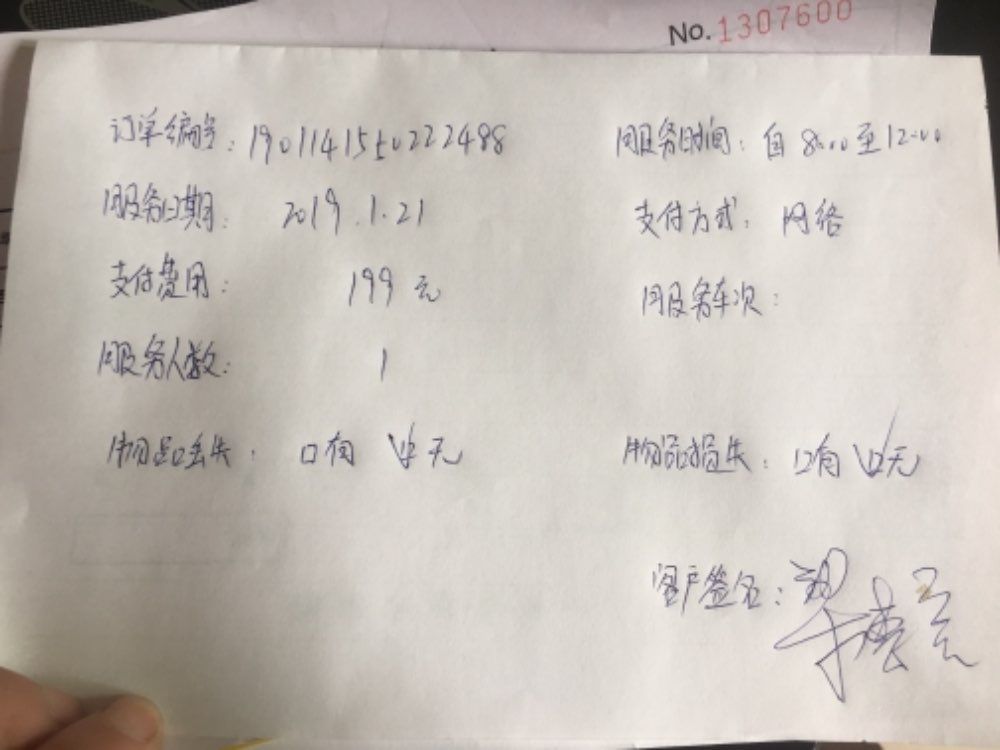 No. 1307600
订单编号：19011415502224​88 服务时间：自 8:00 至 12:00
服务日期：2019.1.21 支付方式：网络
支付费用：199 元 服务车次：
服务人数：1
物品丢失：口有 ☑无 物品损失：口有 ☑无
客户签名：梁